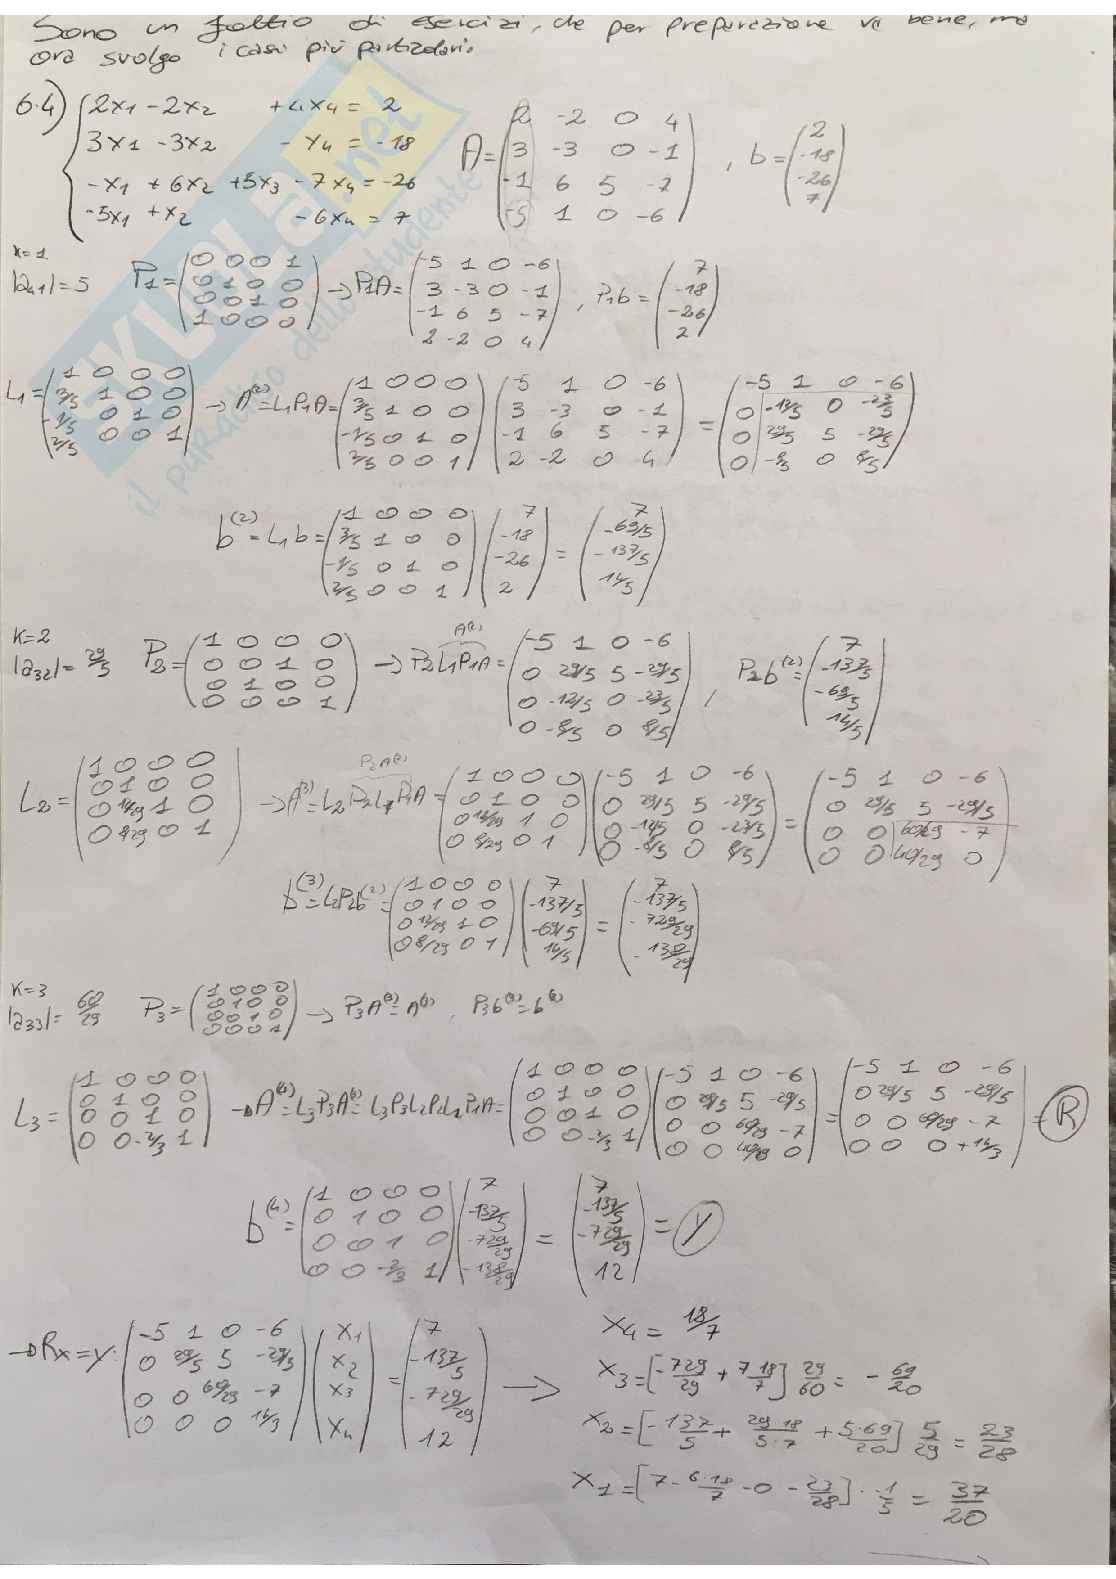 Sono un fottio di esercizi, che per preparazione va bene, ma
ora svolgo i casi più particolari.
6.4) { 2x1 - 2x2 + 4x4 = 2
3x1 - 3x2 - x4 = -18
-x1 + 6x2 + 5x3 - 7x4 = -26
-5x1 + x2 - 6x4 = 7
A = (2 -2 0 4; 3 -3 0 -1; -1 6 5 -7; -5 1 0 -6), b = (2; -18; -26; 7)
K=1
|a41| = 5 P1 = (0 0 0 1; 0 1 0 0; 0 0 1 0; 1 0 0 0) → P1A = (-5 1 0 -6; 3 -3 0 -1; -1 6 5 -7; 2 -2 0 4), P1b = (7; -18; -26; 2)
L1 = (1 0 0 0; 3/5 1 0 0; -1/5 0 1 0; 2/5 0 0 1) → A(2) = L1P1A = (1 0 0 0; 3/5 1 0 0; -1/5 0 1 0; 2/5 0 0 1) (-5 1 0 -6; 3 -3 0 -1; -1 6 5 -7; 2 -2 0 4) = (-5 1 0 -6; 0 -12/5 0 -23/5; 0 29/5 5 -29/5; 0 -8/5 0 8/5)
b(2) = L1b = (1 0 0 0; 3/5 1 0 0; -1/5 0 1 0; 2/5 0 0 1) (7; -18; -26; 2) = (7; -69/5; -137/5; 14/5)
K=2 A(2)
|a32| = 29/5 P2 = (1 0 0 0; 0 0 1 0; 0 1 0 0; 0 0 0 1) → P2L1P1A = (-5 1 0 -6; 0 29/5 5 -29/5; 0 -12/5 0 -23/5; 0 -8/5 0 8/5), P2b(2) = (7; -137/5; -69/5; 14/5)
P2A(2)
L2 = (1 0 0 0; 0 1 0 0; 0 12/29 1 0; 0 8/29 0 1) → A(3) = L2P2L1P1A = (1 0 0 0; 0 1 0 0; 0 12/29 1 0; 0 8/29 0 1) (-5 1 0 -6; 0 29/5 5 -29/5; 0 -12/5 0 -23/5; 0 -8/5 0 8/5) = (-5 1 0 -6; 0 29/5 5 -29/5; 0 0 60/29 -7; 0 0 40/29 0)
b(3) = L2P2b(2) = (1 0 0 0; 0 1 0 0; 0 12/29 1 0; 0 8/29 0 1) (7; -137/5; -69/5; 14/5) = (7; -137/5; -729/29; -138/29)
K=3
|a33| = 60/29 P3 = (1 0 0 0; 0 1 0 0; 0 0 1 0; 0 0 0 1) → P3A(3) = A(3), P3b(3) = b(3)
L3 = (1 0 0 0; 0 1 0 0; 0 0 1 0; 0 0 -2/3 1) → A(4) = L3P3A(3) = L3P3L2P2L1P1A = (1 0 0 0; 0 1 0 0; 0 0 1 0; 0 0 -2/3 1) (-5 1 0 -6; 0 29/5 5 -29/5; 0 0 60/29 -7; 0 0 40/29 0) = (-5 1 0 -6; 0 29/5 5 -29/5; 0 0 60/29 -7; 0 0 0 +14/3) = R
b(4) = (1 0 0 0; 0 1 0 0; 0 0 1 0; 0 0 -2/3 1) (7; -137/5; -729/29; -138/29) = (7; -137/5; -729/29; 12) = Y
→ Rx = y: (-5 1 0 -6; 0 29/5 5 -29/5; 0 0 60/29 -7; 0 0 0 14/3) (x1; x2; x3; x4) = (7; -137/5; -729/29; 12) →
x4 = 18/7
x3 = [-729/29 + 7·18/7] 29/60 = -69/20
x2 = [-137/5 + 29·18/5·7 + 5·69/20] 5/29 = 23/28
x1 = [7 - 6·18/7 - 0 - 23/28] · -1/5 = 37/20
SKUOLA.net
il paradiso dello studente